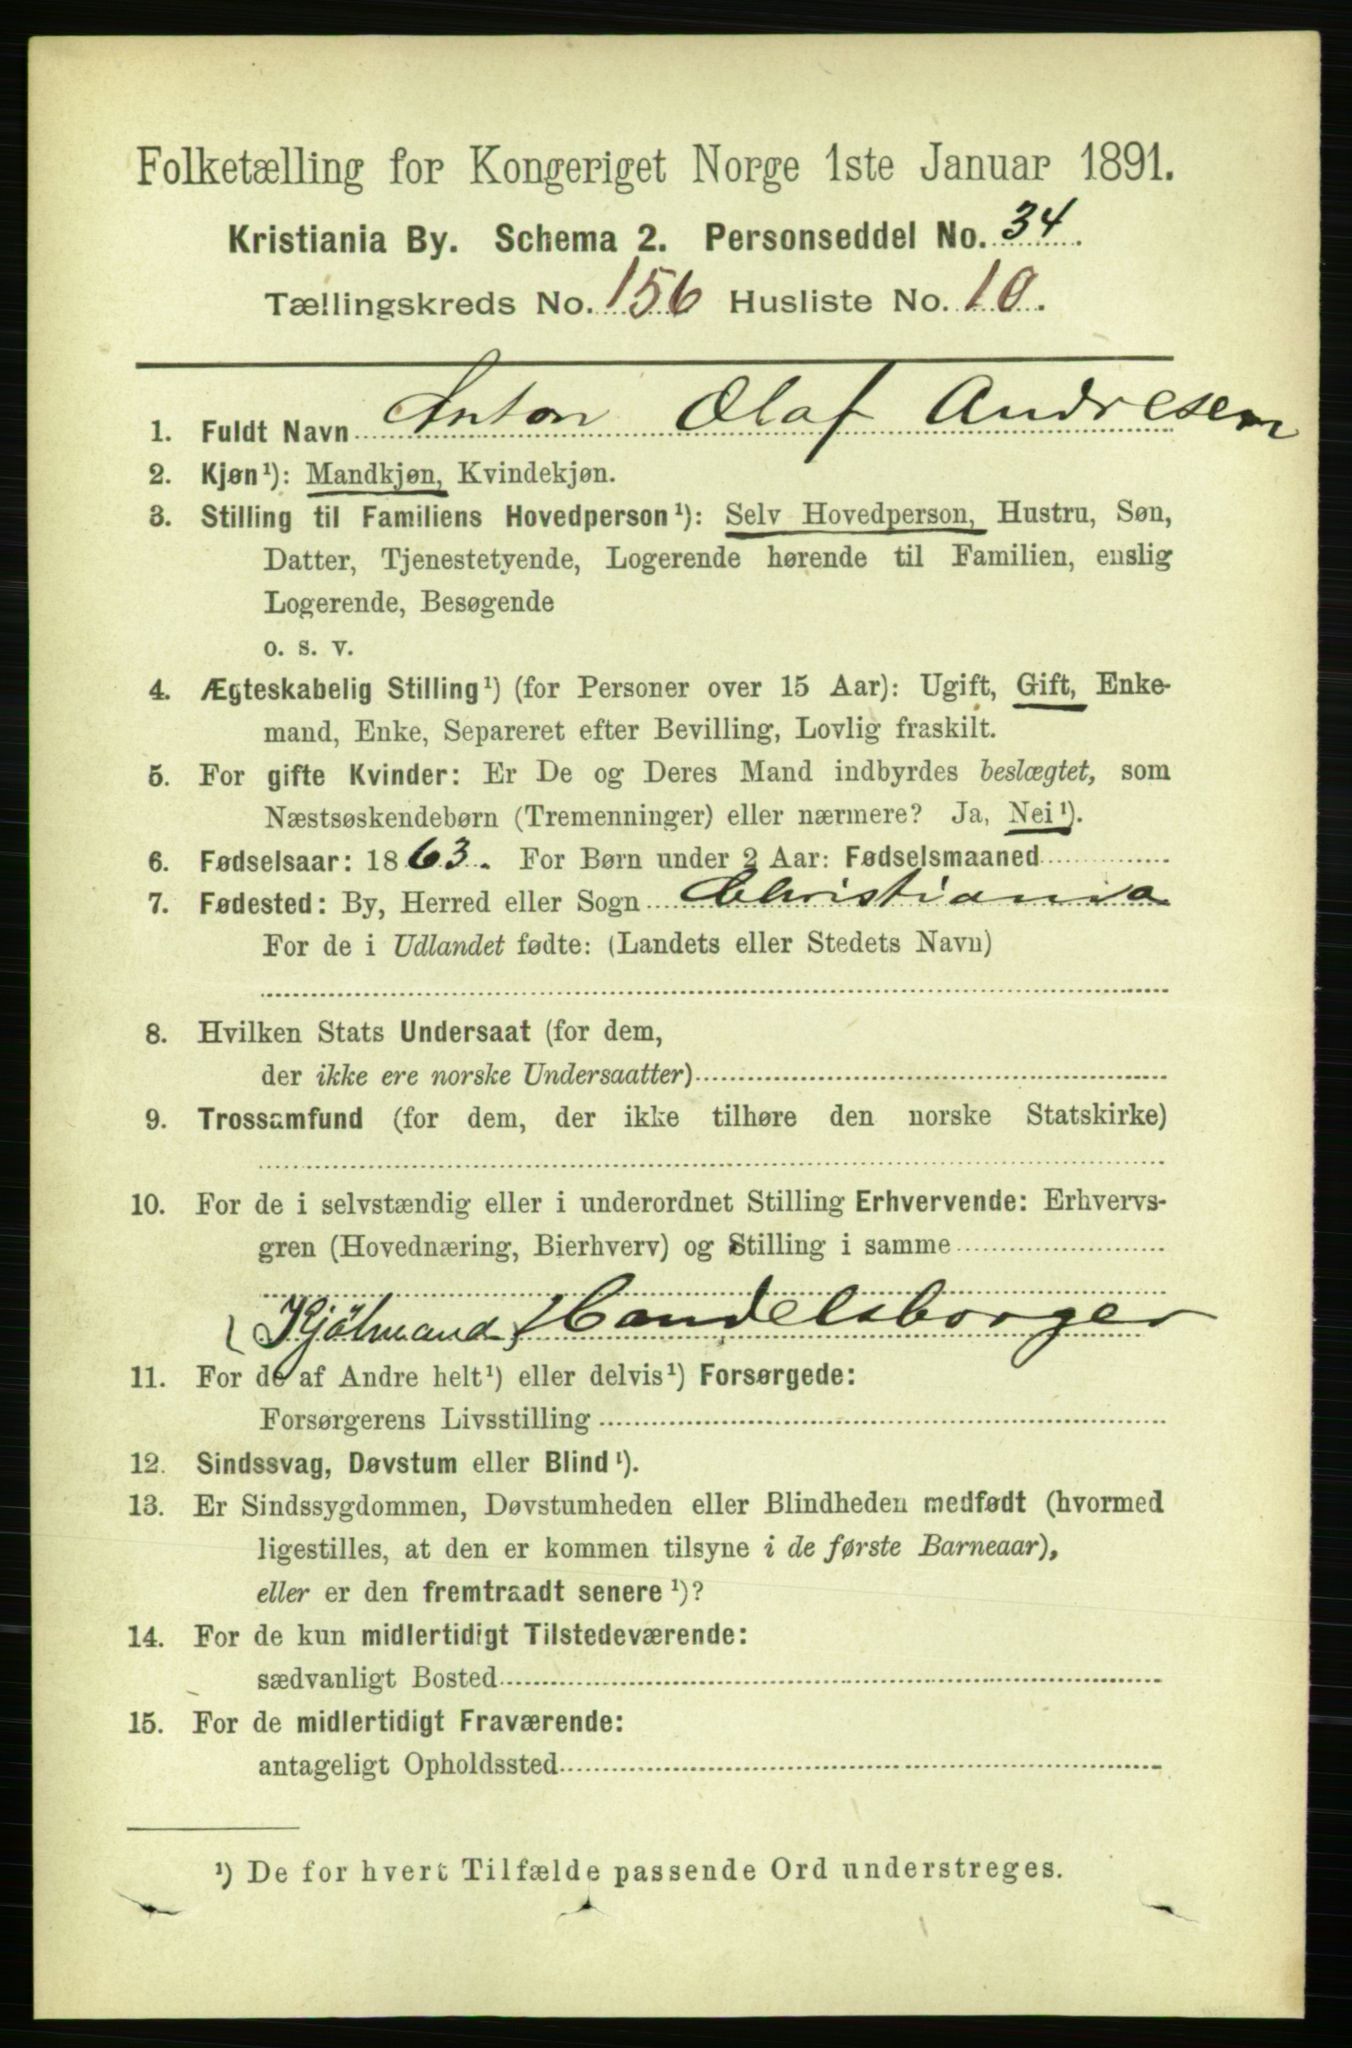 Folketælling for Kongeriget Norge 1ste Januar 1891.
Kristiania By. Schema 2. Personseddel No. 34.
Tællingskreds No. 156 Husliste No. 10.
1. Fuldt Navn Anton Olaf Andresen
2. Kjøn¹): Mandkjøn, Kvindekjøn.
3. Stilling til Familiens Hovedperson¹): Selv Hovedperson, Hustru, Søn,
Datter, Tjenestetyende, Logerende hørende til Familien, enslig
Logerende, Besøgende
o. s. v.
4. Ægteskabelig Stilling¹) (for Personer over 15 Aar): Ugift, Gift, Enke-
mand, Enke, Separeret efter Bevilling, Lovlig fraskilt.
5. For gifte Kvinder: Er De og Deres Mand indbyrdes beslægtet, som
Næstsøskendebørn (Tremenninger) eller nærmere? Ja, Nei¹).
6. Fødselsaar: 1863. For Børn under 2 Aar: Fødselsmaaned
7. Fødested: By, Herred eller Sogn Christiania
For de i Udlandet fødte: (Landets eller Stedets Navn)
8. Hvilken Stats Undersaat (for dem,
der ikke ere norske Undersaatter)
9. Trossamfund (for dem, der ikke tilhøre den norske Statskirke)
10. For de i selvstændig eller i underordnet Stilling Erhvervende: Erhvervs-
gren (Hovednæring, Bierhverv) og Stilling i samme
(Kjölmand) Handelsborger
11. For de af Andre helt¹) eller delvis¹) Forsørgede:
Forsørgerens Livsstilling
12. Sindssvag, Døvstum eller Blind¹).
13. Er Sindssygdommen, Døvstumheden eller Blindheden medfødt (hvormed
ligestilles, at den er kommen tilsyne i de første Barneaar),
eller er den fremtraadt senere¹)?
14. For de kun midlertidigt Tilstedeværende:
sædvanligt Bosted
15. For de midlertidigt Fraværende:
antageligt Opholdssted
¹) De for hvert Tilfælde passende Ord understreges.